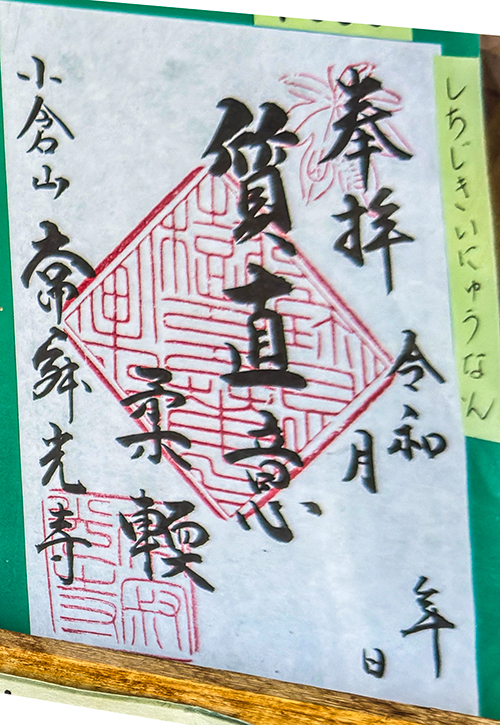 しちじきいにゅうなん
奉拝
令和 年
月 日
質直意
柔輭
小倉山
常寂光寺